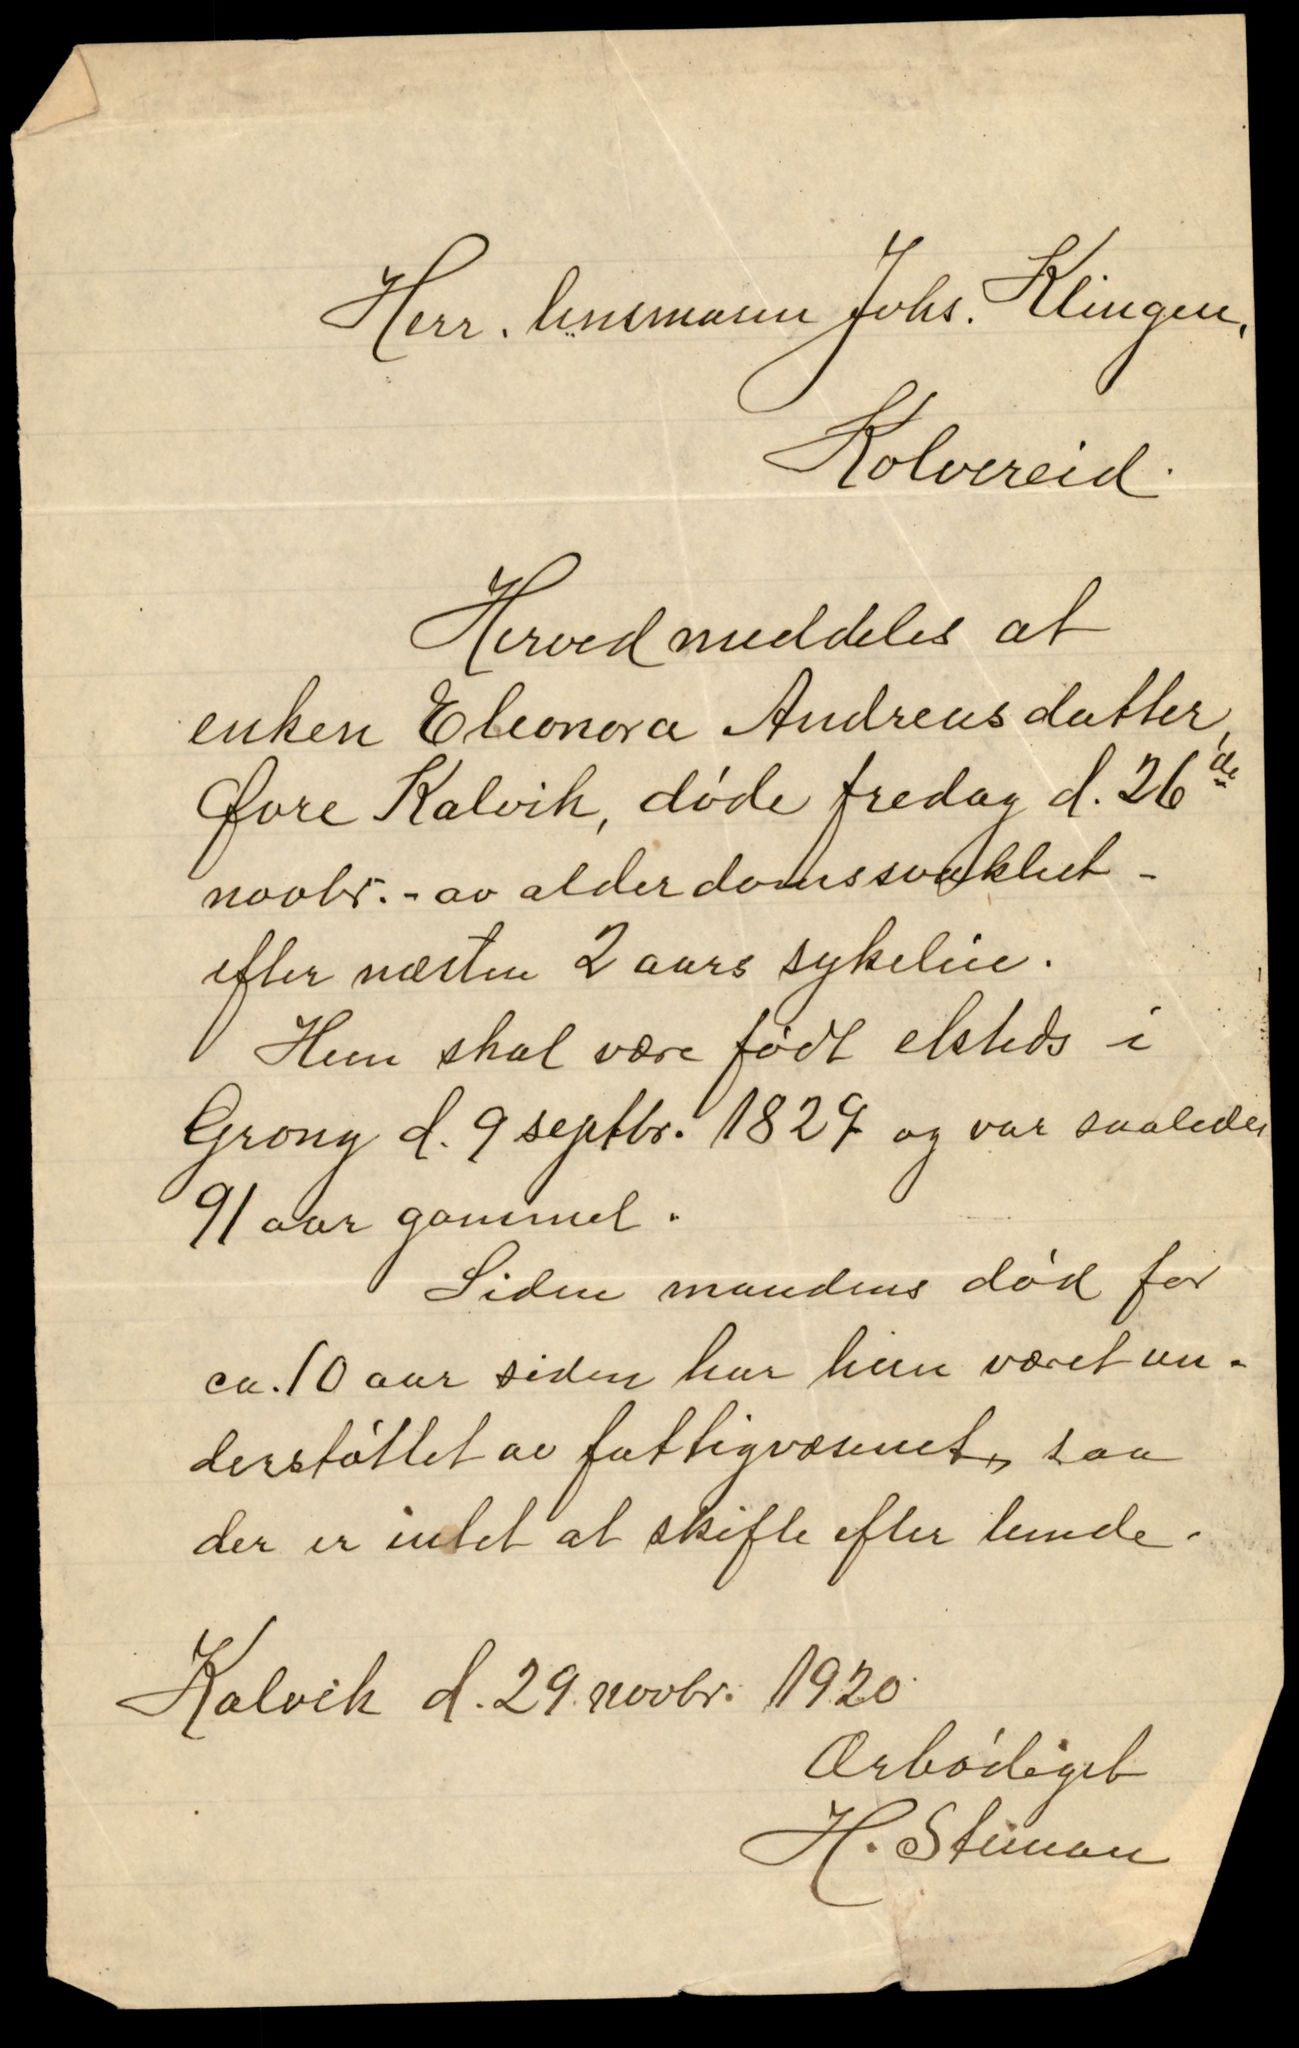 Herr. lensmann Johs. Klingen,
Kolvereid.
Herved meddeles at
enken Eleonora Andreasdatter,
Øvre Kalvik, døde fredag d. 26de
novbr. - av alderdomssvakhet -
efter næsten 2 aars sykeleie.
Hun skal være født elsteds i
Grong d. 9 septbr. 1829 og var saaledes
91 aar gammel.
Siden mandens død for
ca. 10 aar siden har hun været un-
derstøttet av fattigvæsenet, saa
der er intet at skifte efter hende.
Kalvik d. 29. novbr. 1920.
Ærbødigst
H.